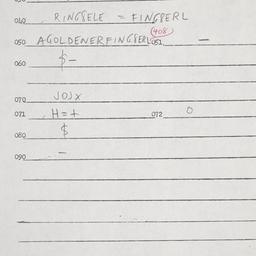 040 RINGSELE = FINGSERL
(408)
050 AGOLDENERFINGSERL 051 —
060 $-
070 JOJX
071 H=+ 072 0
080 $
090 —